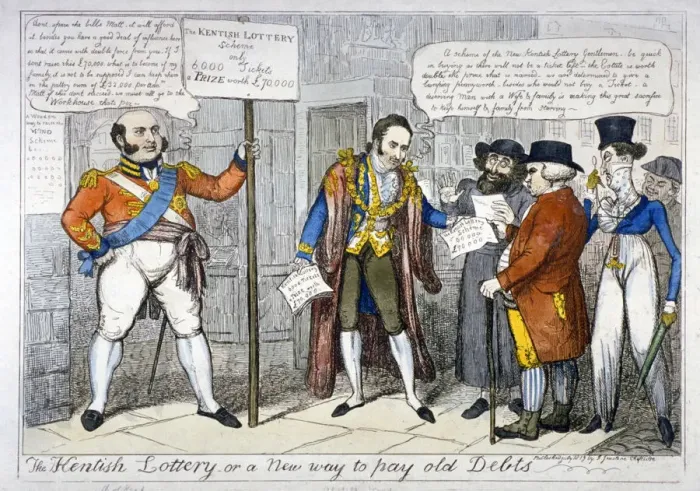 dont spare the bills Matt. it will afford
it. besides you have a good deal of influence here
so that it comes with double force from you. If I
dont raise this £70,000 what is to become of my
family, it is not to be supposed I can keep them
on the paltry sum of £
Matt if this dont succeed, we must all go to the
Workhouse thats poz—
The KENTISH LOTTERY
Scheme
only
6,000 Tickets
a PRIZE worth £70,000
A scheme of the New Kentish Lottery Gentlemen— be quick
in buying as there will not be a ticket left— the Estate is worth
double the price that is named, we are determined to give a
pennyworth. besides who would not buy a Ticket— a
deserving Man with a Wife & family is making this great sacrifice
to keep himself & family from Starving—
Scheme
Lottery
Tickets
worth
Scheme
£70,000
The Kentish Lottery or a New way to pay old Debts